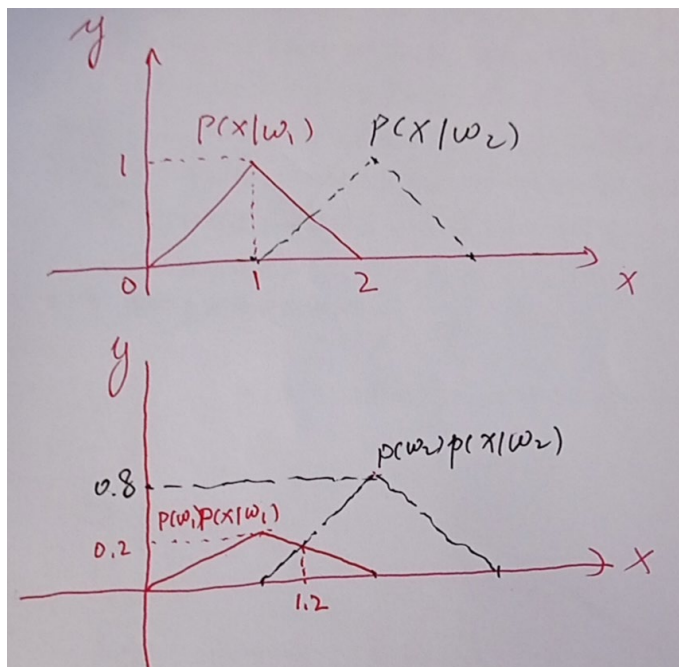 y
P(x/ω₁)
P(x/ω₂)
1
0
1
2
x
y
P(ω₂)p(x/ω₂)
0.8
P(ω₁)P(x/ω₁)
0.2
1.2
x